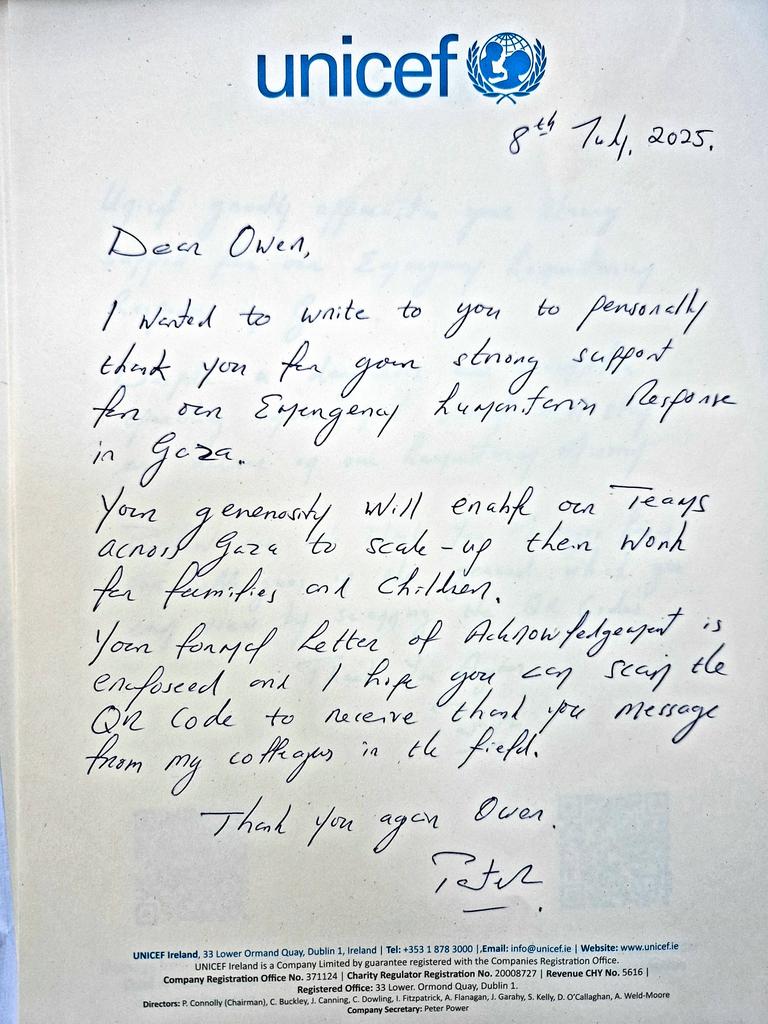 unicef
8th July, 2025.
Dear Owen,
I wanted to write to you to personally
thank you for your strong support
for our Emergency humanitarian Response
in Gaza.
Your generosity will enable our Teams
across Gaza to scale-up their work
for families and children.
Your formal Letter of Acknowledgement is
enclosed and I hope you can scan the
QR Code to receive thank you message
from my colleagues in the field.
Thank you again Owen.
Peter
UNICEF Ireland, 33 Lower Ormand Quay, Dublin 1, Ireland | Tel: +353 1 878 3000 | Email: info@unicef.ie | Website: www.unicef.ie
UNICEF Ireland is a Company Limited by guarantee registered with the Companies Registration Office.
Company Registration Office No. 371124 | Charity Regulator Registration No. 20008727 | Revenue CHY No. 5616 |
Registered Office: 33 Lower. Ormond Quay, Dublin 1.
Directors: P. Connolly (Chairman), C. Buckley, J. Canning, C. Dowling, I. Fitzpatrick, A. Flanagan, J. Garahy, S. Kelly, D. O'Callaghan, A. Weld-Moore
Company Secretary: Peter Power